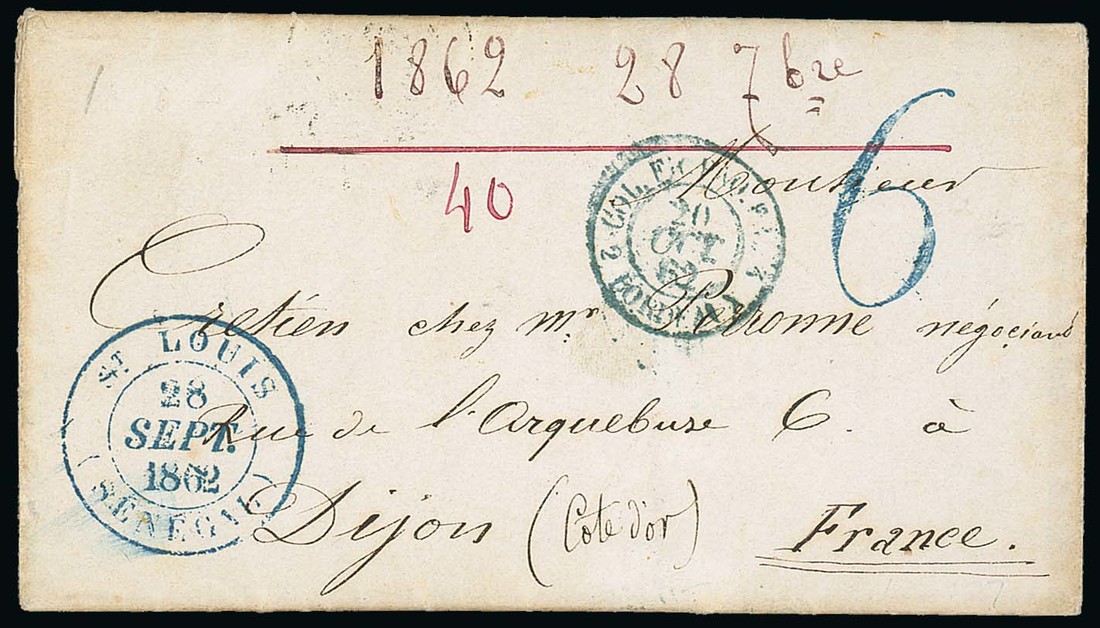 1862 28 7bre
40
6
Monsieur
Cretien chez mr Peronne négociant
Rue de l'Arquebuse 6. à
Dijon (Cote d'or) France.
ST LOUIS
28
SEPT.
1862
(SENEGAL)
COL. FR.
20
OCT
62